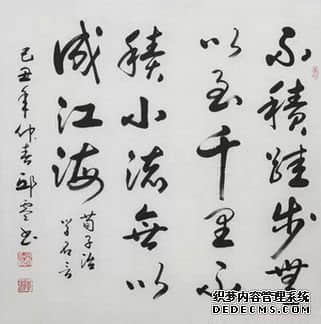 不積跬步無
以至千里不
積小流無以
成江海
荀子治
学名言
己丑年仲春 书
织梦内容管理系统
DEDECMS.COM